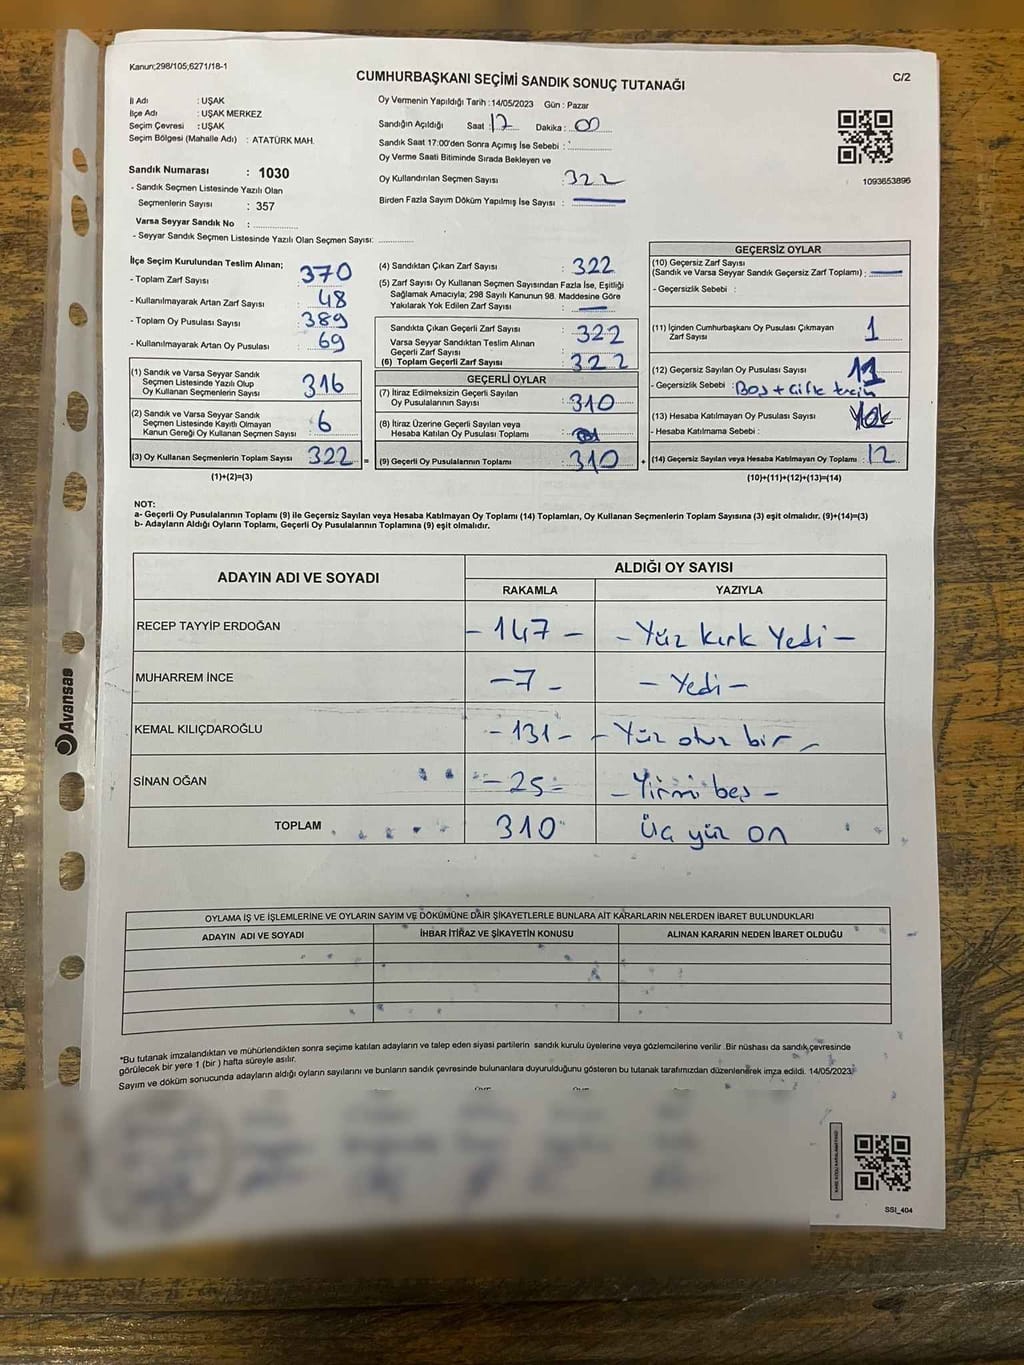 Kanun;298/105;6271/18-1
CUMHURBAŞKANI SEÇİMİ SANDIK SONUÇ TUTANAĞI
C/2
İl Adı : UŞAK
İlçe Adı : UŞAK MERKEZ
Seçim Çevresi : UŞAK
Seçim Bölgesi (Mahalle Adı) : ATATÜRK MAH.
Sandık Numarası : 1030
- Sandık Seçmen Listesinde Yazılı Olan
Seçmenlerin Sayısı : 357
Varsa Seyyar Sandık No :
- Seyyar Sandık Seçmen Listesinde Yazılı Olan Seçmen Sayısı:
Oy Vermenin Yapıldığı Tarih : 14/05/2023 Gün : Pazar
Sandığın Açıldığı Saat : 17 Dakika : 00
Sandık Saat 17:00'den Sonra Açımış İse Sebebi :
Oy Verme Saati Bitiminde Sırada Bekleyen ve
Oy Kullandırılan Seçmen Sayısı : 322
Birden Fazla Sayım Döküm Yapılmış İse Sayısı :
1093653896
İlçe Seçim Kurulundan Teslim Alınan;
- Toplam Zarf Sayısı : 370
- Kullanılmayarak Artan Zarf Sayısı : 48
- Toplam Oy Pusulası Sayısı : 389
- Kullanılmayarak Artan Oy Pusulası : 69
(1) Sandık ve Varsa Seyyar Sandık
Seçmen Listesinde Yazılı Olup
Oy Kullanan Seçmenlerin Sayısı : 316
(2) Sandık ve Varsa Seyyar Sandık
Seçmen Listesinde Kayıtlı Olmayan
Kanun Gereği Oy Kullanan Seçmen Sayısı : 6
(3) Oy Kullanan Seçmenlerin Toplam Sayısı : 322 =
(1)+(2)=(3)
(4) Sandıktan Çıkan Zarf Sayısı : 322
(5) Zarf Sayısı Oy Kullanan Seçmen Sayısından Fazla İse, Eşitliği
Sağlamak Amacıyla; 298 Sayılı Kanunun 98. Maddesine Göre
Yakılarak Yok Edilen Zarf Sayısı :
Sandıkta Çıkan Geçerli Zarf Sayısı : 322
Varsa Seyyar Sandıktan Teslim Alınan
Geçerli Zarf Sayısı :
(6) Toplam Geçerli Zarf Sayısı : 322
GEÇERLİ OYLAR
(7) İtiraz Edilmeksizin Geçerli Sayılan
Oy Pusulalarının Sayısı : 310
(8) İtiraz Üzerine Geçerli Sayılan veya
Hesaba Katılan Oy Pusulası Toplamı :
(9) Geçerli Oy Pusulalarının Toplamı : 310 +
GEÇERSİZ OYLAR
(10) Geçersiz Zarf Sayısı
(Sandık ve Varsa Seyyar Sandık Geçersiz Zarf Toplamı) :
- Geçersizlik Sebebi :
(11) İçinden Cumhurbaşkanı Oy Pusulası Çıkmayan
Zarf Sayısı : 1
(12) Geçersiz Sayılan Oy Pusulası Sayısı : 11
- Geçersizlik Sebebi : Boş + Çifte tercih
(13) Hesaba Katılmayan Oy Pusulası Sayısı : Yok
- Hesaba Katılmama Sebebi :
(14) Geçersiz Sayılan veya Hesaba Katılmayan Oy Toplamı : 12
(10)+(11)+(12)+(13)=(14)
NOT:
a- Geçerli Oy Pusulalarının Toplamı (9) ile Geçersiz Sayılan veya Hesaba Katılmayan Oy Toplamı (14) Toplamları, Oy Kullanan Seçmenlerin Toplam Sayısına (3) eşit olmalıdır. (9)+(14)=(3)
b- Adayların Aldığı Oyların Toplamı, Geçerli Oy Pusulalarının Toplamına (9) eşit olmalıdır.
ADAYIN ADI VE SOYADI
ALDIĞI OY SAYISI
RAKAMLA YAZIYLA
RECEP TAYYİP ERDOĞAN - 147 - - Yüz kırk Yedi -
MUHARREM İNCE - 7 - - Yedi -
KEMAL KILIÇDAROĞLU - 131 - - Yüz otuz bir -
SİNAN OĞAN - 25 - - Yirmi beş -
TOPLAM 310 Üç yüz on
OYLAMA İŞ VE İŞLEMLERİNE VE OYLARIN SAYIM VE DÖKÜMÜNE DAİR ŞİKAYETLERLE BUNLARA AİT KARARLARIN NELERDEN İBARET BULUNDUKLARI
ADAYIN ADI VE SOYADI İHBAR İTİRAZ VE ŞİKAYETİN KONUSU ALINAN KARARIN NEDEN İBARET OLDUĞU
*Bu tutanak imzalandıktan ve mühürlendikten sonra seçime katılan adayların ve talep eden siyasi partilerin sandık kurulu üyelerine veya gözlemcilerine verilir. Bir nüshası da sandık çevresinde
görülecek bir yere 1 (bir) hafta süreyle asılır.
Sayım ve döküm sonucunda adayların aldığı oyların sayılarını ve bunların sandık çevresinde bulunanlara duyurulduğunu gösteren bu tutanak tarafımızdan düzenlenerek imza edildi. 14/05/2023
SSI_404
Avansas